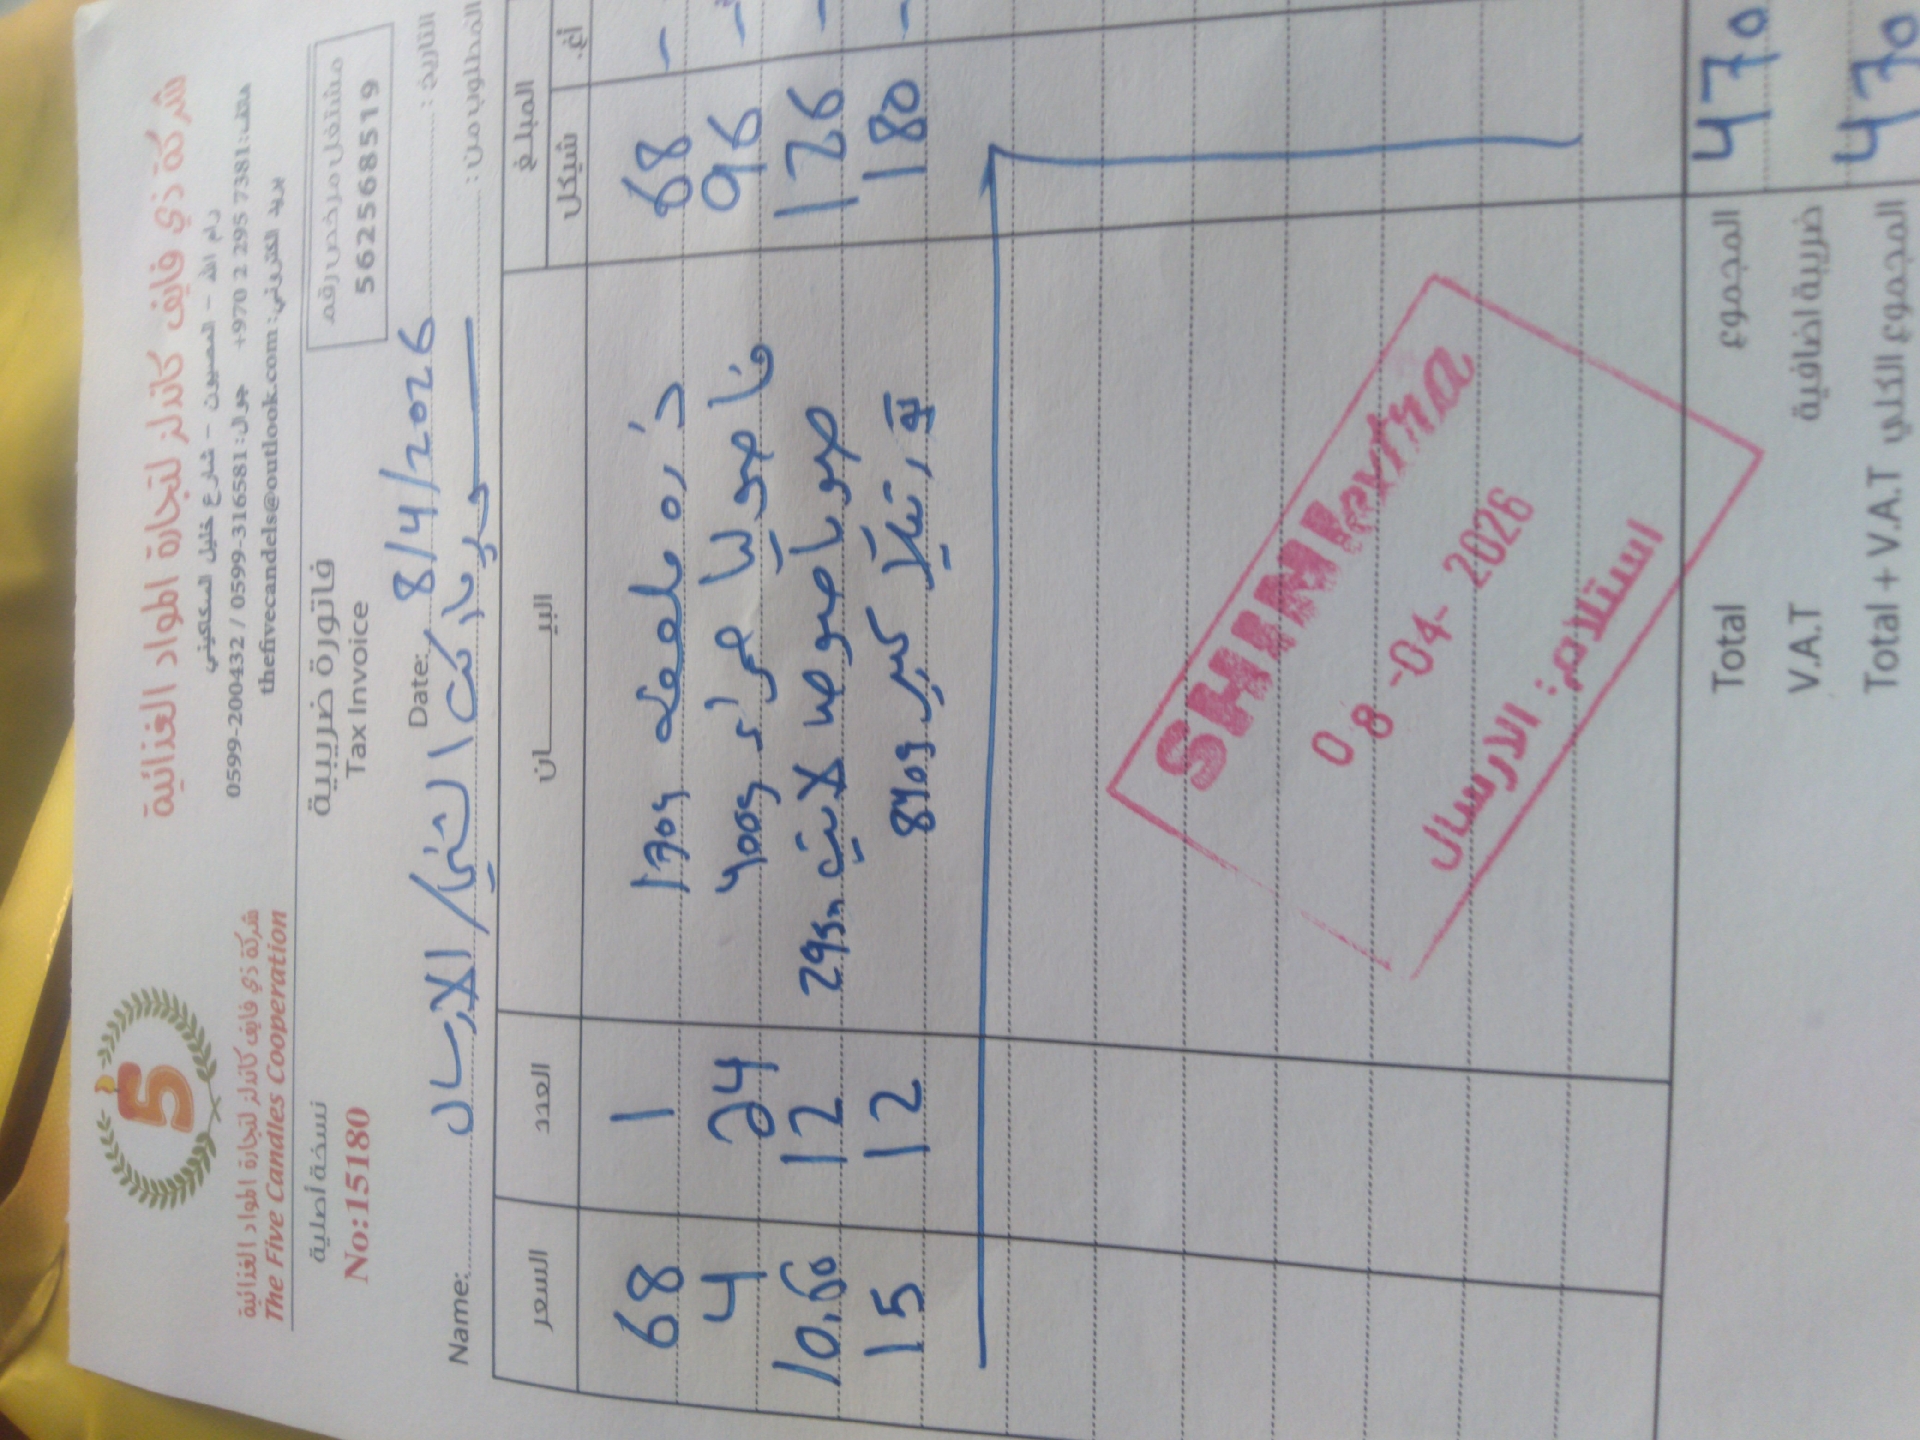 شركة ذي فايف كاندلز لتجارة المواد الغذائية
رام الله - المصيون - شارع خليل السكاكيني
هاتف: +970 2 295 7381 جوال: 0599-316581 / 0599-200432
بريد الكتروني: thefivecandels@outlook.com
5
شركة ذي فايف كاندلز لتجارة المواد الغذائية
The Five Candles Cooperation
مشتغل مرخص رقم
562568519
فاتورة ضريبية
Tax Invoice
نسخة أصلية
No:151180
التاريخ: 8/4/2026 Date:
المطلوب من: سوبر ماركت الشني / الارسال Name:
المبلغ البيــــان العدد السعر
شيكل أغ.
68 - ذره 170g 1 68
96 - فاصوليا 400g 24 4
126 - صويا صوص لايت 295m 12 10.50
180 - كبير 840g 12 15
SHINI extra
08-04-2026
استلام: الارسال
470 المجموع Total
ضريبة اضافية V.A.T
470 المجموع الكلي Total + V.A.T